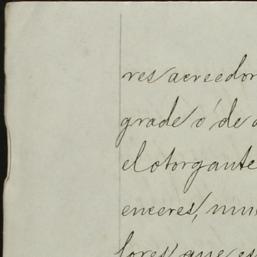 res acreedor
grade ó de
el otorgante
enceres, mu
lores que es